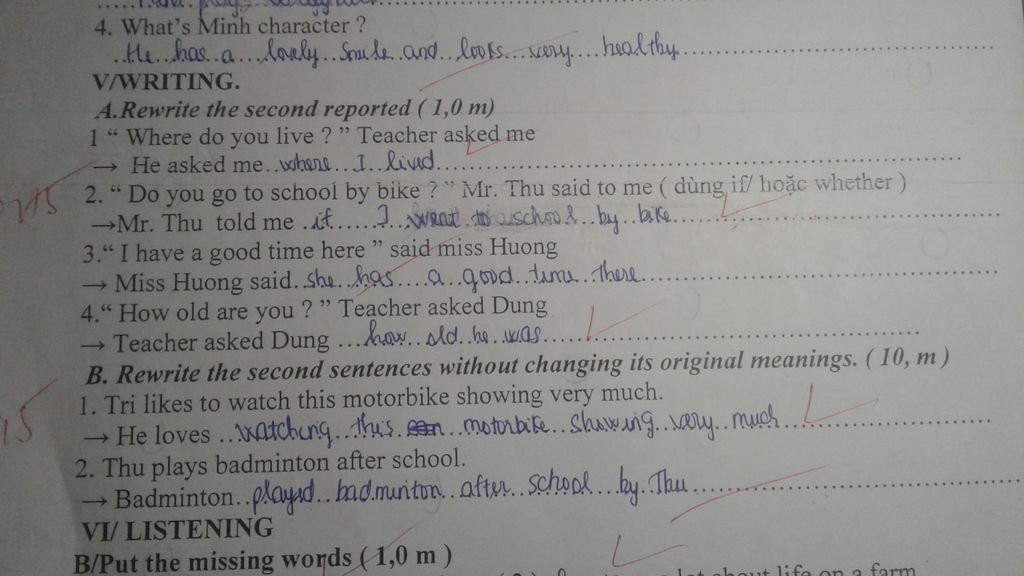 4. What's Minh character ?
He has a lovely smile and looks very healthy
V/WRITING.
A.Rewrite the second reported ( 1,0 m)
1 “ Where do you live ? ” Teacher asked me
→ He asked me where I lived
2. “ Do you go to school by bike ? ” Mr. Thu said to me ( dùng if/ hoặc whether )
→Mr. Thu told me if I went to school by bike
3.“ I have a good time here ” said miss Huong
→ Miss Huong said she has a good time there
4.“ How old are you ? ” Teacher asked Dung
→ Teacher asked Dung how old he was
B. Rewrite the second sentences without changing its original meanings. ( 10, m )
1. Tri likes to watch this motorbike showing very much.
→ He loves watching this motorbike showing very much
2. Thu plays badminton after school.
→ Badminton played badminton after school by Thu
VI/ LISTENING
B/Put the missing words ( 1,0 m )
lot about life on a farm